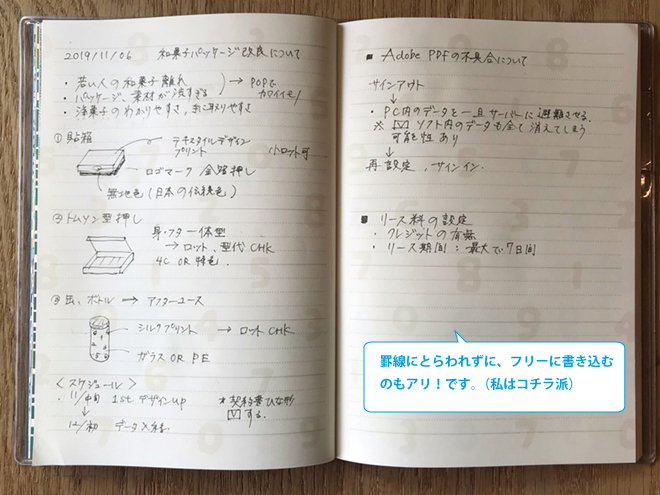 2019/11/06 和菓子パッケージ改良について
・若い人の和菓子離れ
・パッケージ、素材が渋すぎる
→ POPで
カワイイモノ
・洋菓子のわかりやすさ、手に取りやすさ
①貼箱
テキスタイルデザイン
プリント
小ロット可
ロゴマーク 金箔押し
無地色(日本の伝統色)
②トムソン型押し
身・フタ一体型
→ ロット、型代 CHK
4C OR 特色.
③缶、ボトル → アフターユース
シルクプリント → ロット CHK
ガラス OR PE
<スケジュール>
・11/中旬 1st デザインup
↓
12/初 データ入稿.
*契約書ひな形
する.
■ Adobe PDFの不具合について
サインアウト
↓
・PC内のデータを一旦サーバーに避難させる.
※ ソフト内のデータも全て消えてしまう
可能性あり
↓
再設定、サインイン.
■ リース料の設定
・クレジットの有無
・リース期間:最大で7日間
罫線にとらわれずに、フリーに書き込む
のもアリ!です。(私はコチラ派)